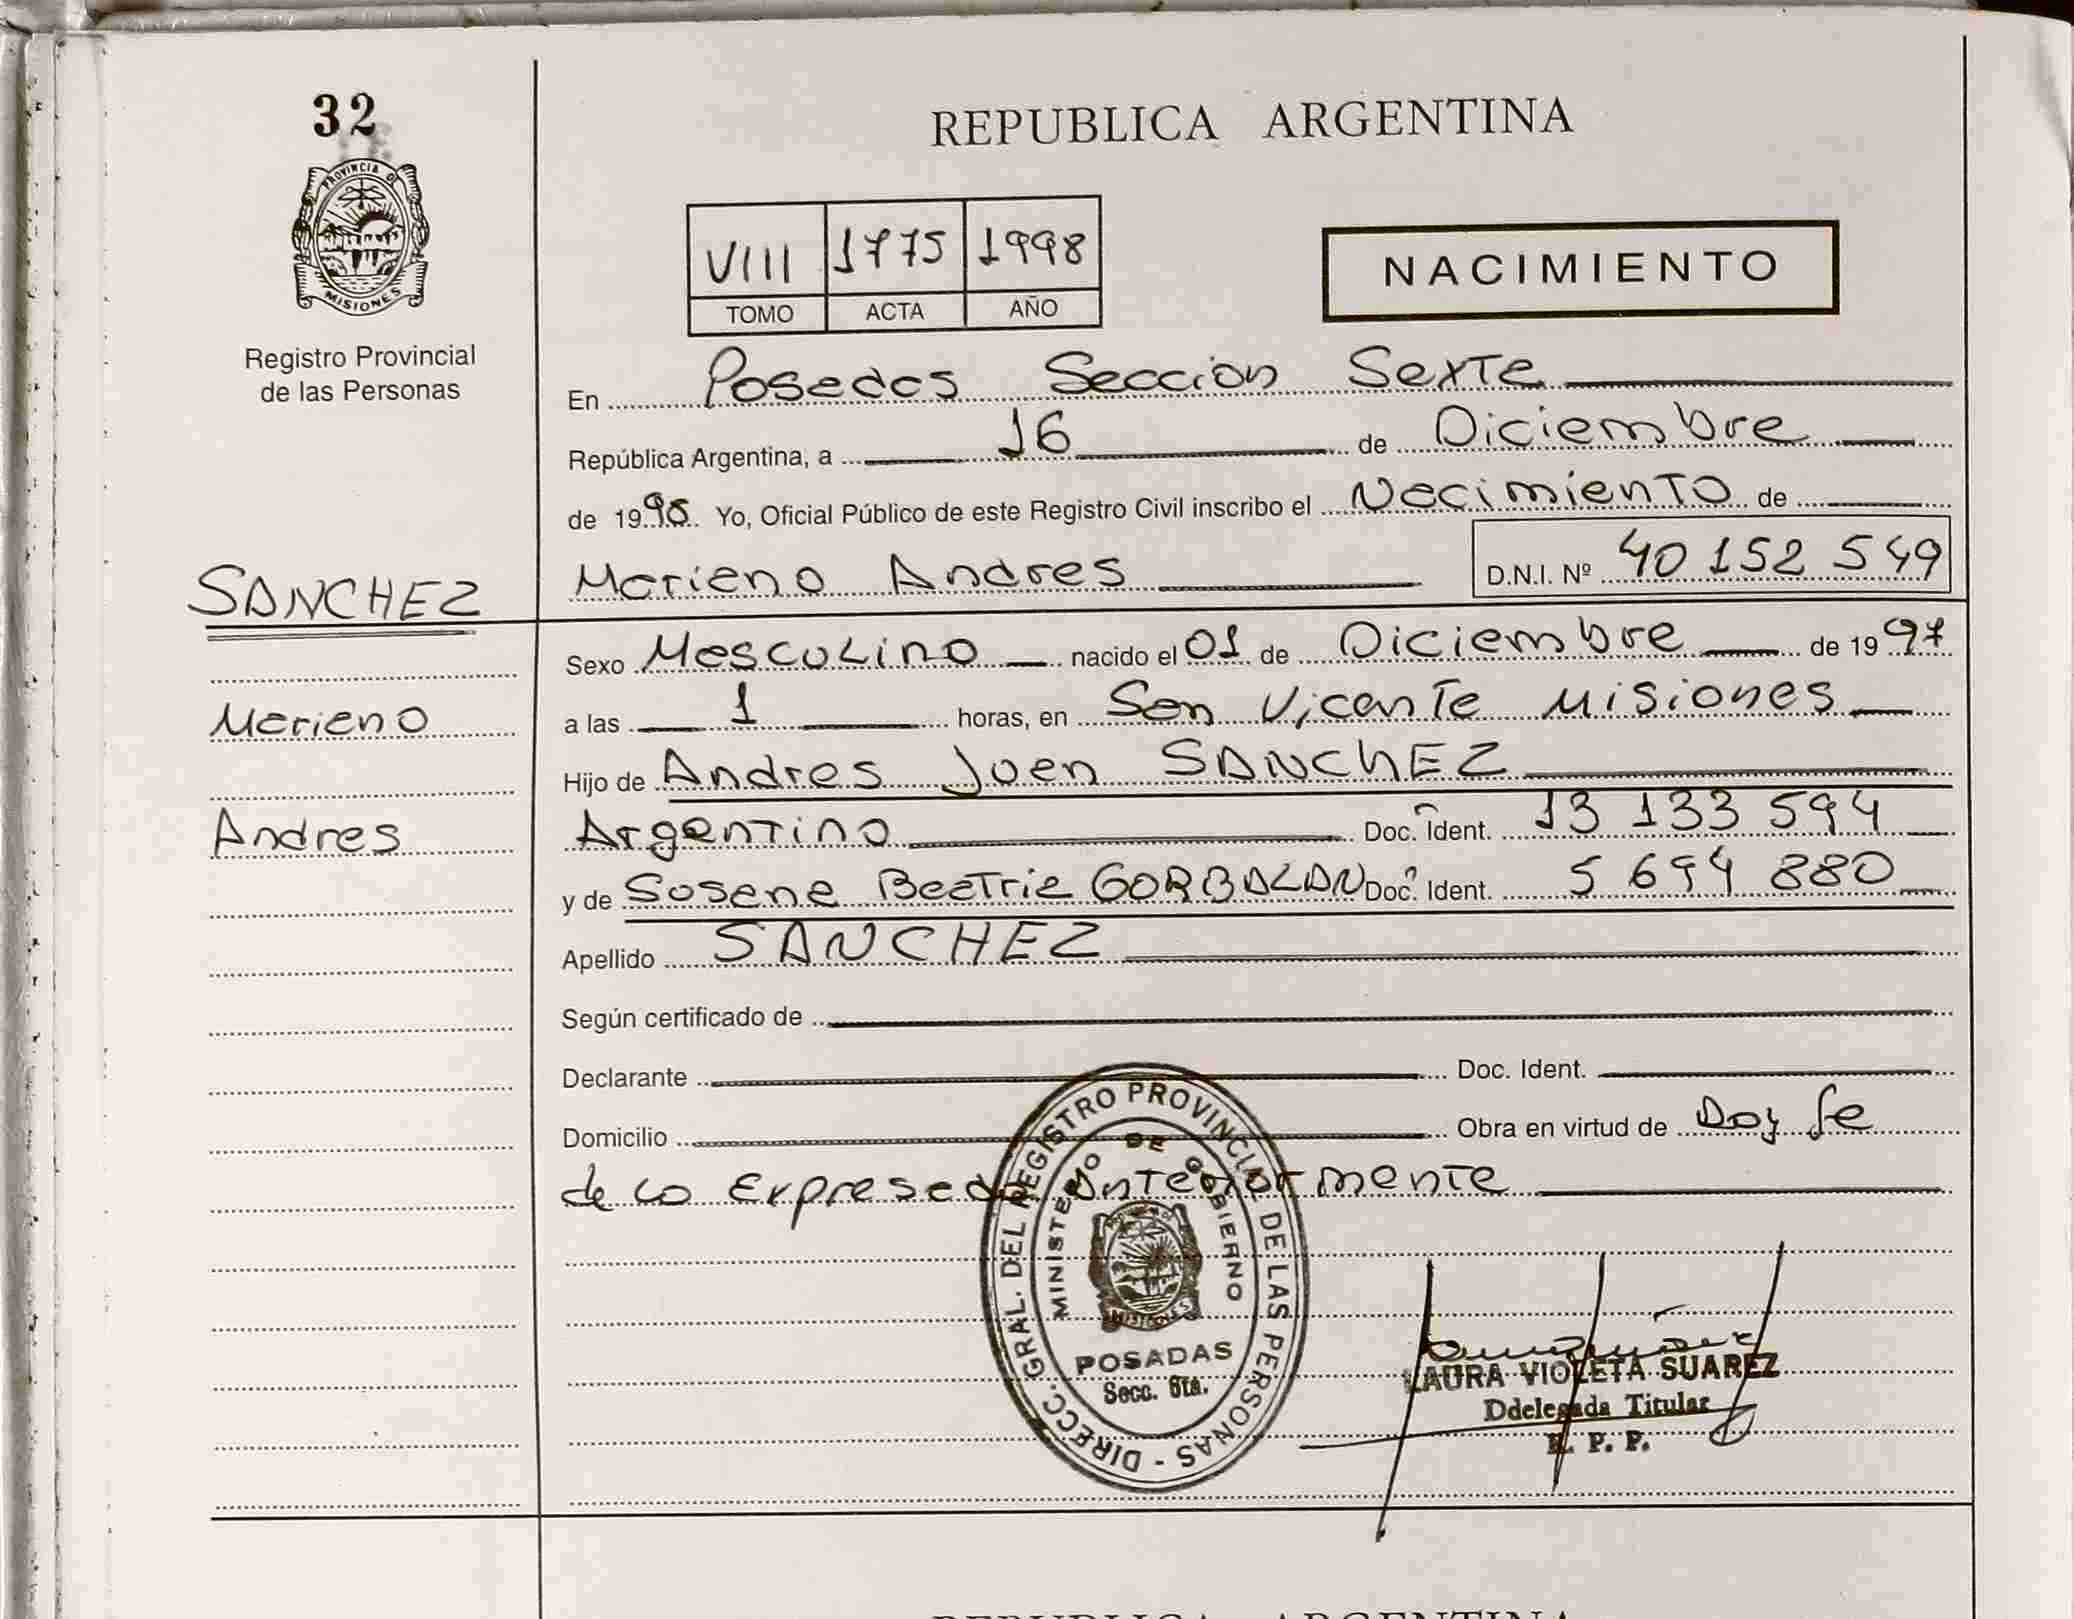 32
PROVINCIA D
MISIONES
Registro Provincial
de las Personas
REPUBLICA ARGENTINA
VIII 1775 1998
TOMO ACTA AÑO
NACIMIENTO
En Posadas Seccion Sexta
República Argentina, a 16 de Diciembre
de 1998. Yo, Oficial Público de este Registro Civil inscribo el Nacimiento de
SANCHEZ
Mariano Andres D.N.I. Nº 40 152 549
Sexo Masculino nacido el 01 de Diciembre de 1997
Mariano
a las 1 horas, en San Vicente Misiones
Hijo de Andres Juan SANCHEZ
Andres
Argentino Doc. Ident. 13 133 594
y de Susana Beatriz GORBALAN Doc. Ident. 5 694 880
Apellido SANCHEZ
Según certificado de
Declarante Doc. Ident.
Domicilio Obra en virtud de Doy fe
de lo Expresado Anteriormente
DIRECC. GRAL. DEL REGISTRO PROVINCIAL DE LAS PERSONAS -
MINISTERIO DE GOBIERNO
MISIONES
POSADAS
Secc. 6ta.
LAURA VIOLETA SUAREZ
Ddelegada Titular
R. P. P.
REPUBLICA ARGENTINA